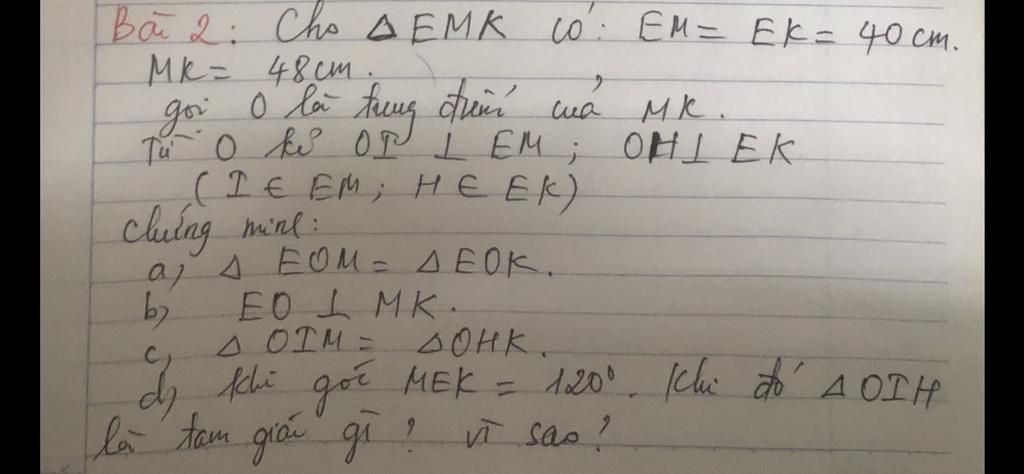 Bài 2: Cho △EMK có: EM = EK = 40cm.
MK = 48cm.
gọi O là trung điểm của MK.
Từ O kẻ OI ⊥ EM; OH ⊥ EK
(I ∈ EM; H ∈ EK)
Chứng minh:
a, △ EOM = △EOK.
b, EO ⊥ MK.
c, △ OIM = △OHK.
d, Khi góc MEK = 120⁰. Khi đó △OIH
là tam giác gì? vì sao?